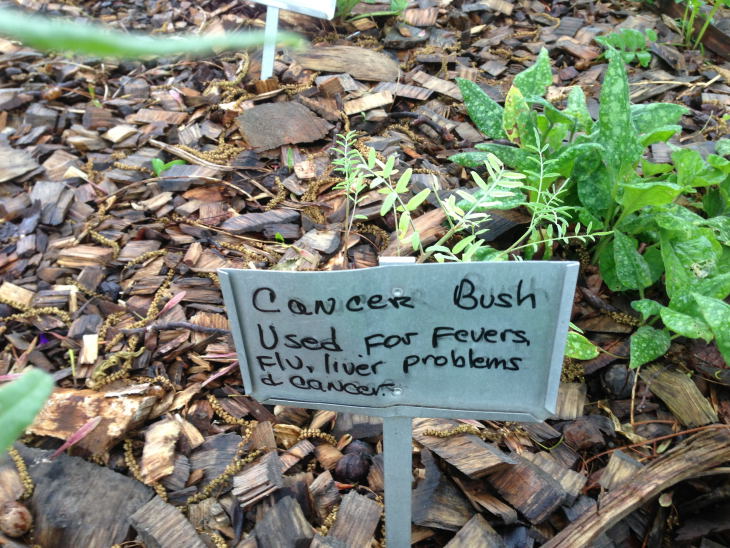 Cancer Bush
Used For Fevers,
Flu, liver problems
& cancer.